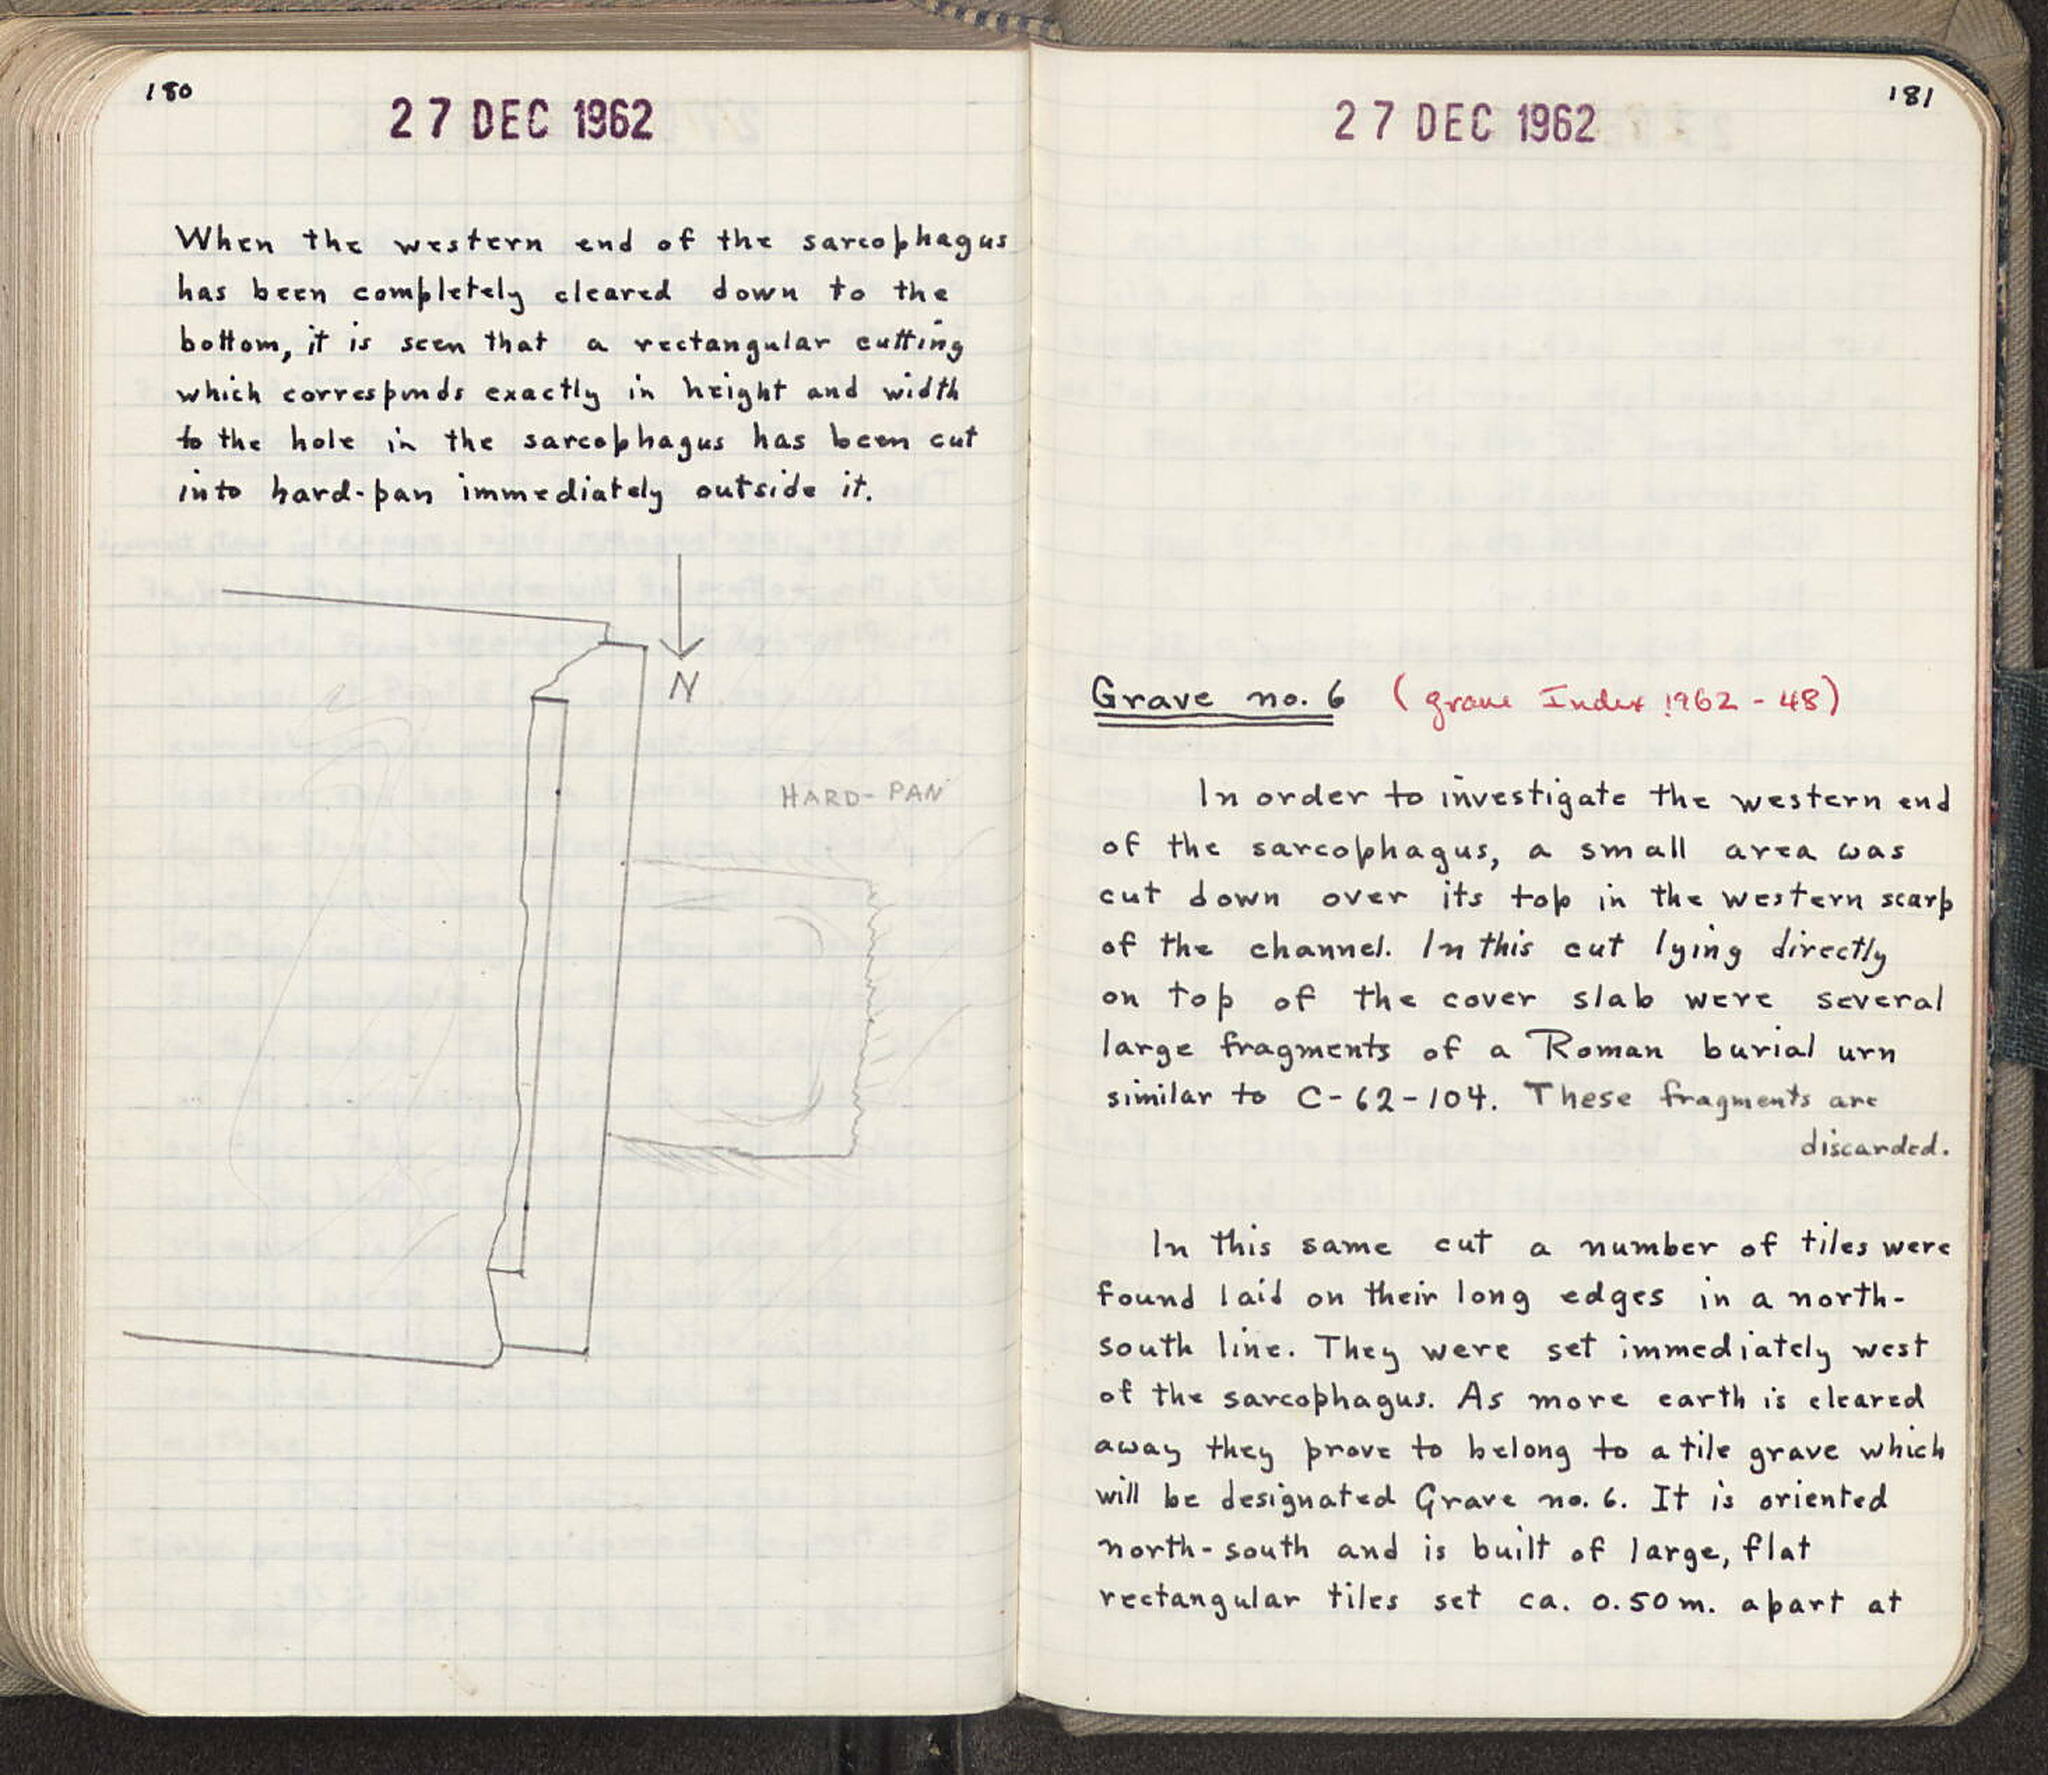 180
27 DEC 1962
When the western end of the sarcophagus
has been completely cleared down to the
bottom, it is seen that a rectangular cutting
which corresponds exactly in height and width
to the hole in the sarcophagus has been cut
into hard-pan immediately outside it.
N
HARD-PAN
181
27 DEC 1962
Grave no. 6 (grave Index 1962-48)
In order to investigate the western end
of the sarcophagus, a small area was
cut down over its top in the western scarp
of the channel. In this cut lying directly
on top of the cover slab were several
large fragments of a Roman burial urn
similar to C-62-104. These fragments are
discarded.
In this same cut a number of tiles were
found laid on their long edges in a north-
south line. They were set immediately west
of the sarcophagus. As more earth is cleared
away they prove to belong to a tile grave which
will be designated Grave no. 6. It is oriented
north-south and is built of large, flat
rectangular tiles set ca. 0.50 m. apart at